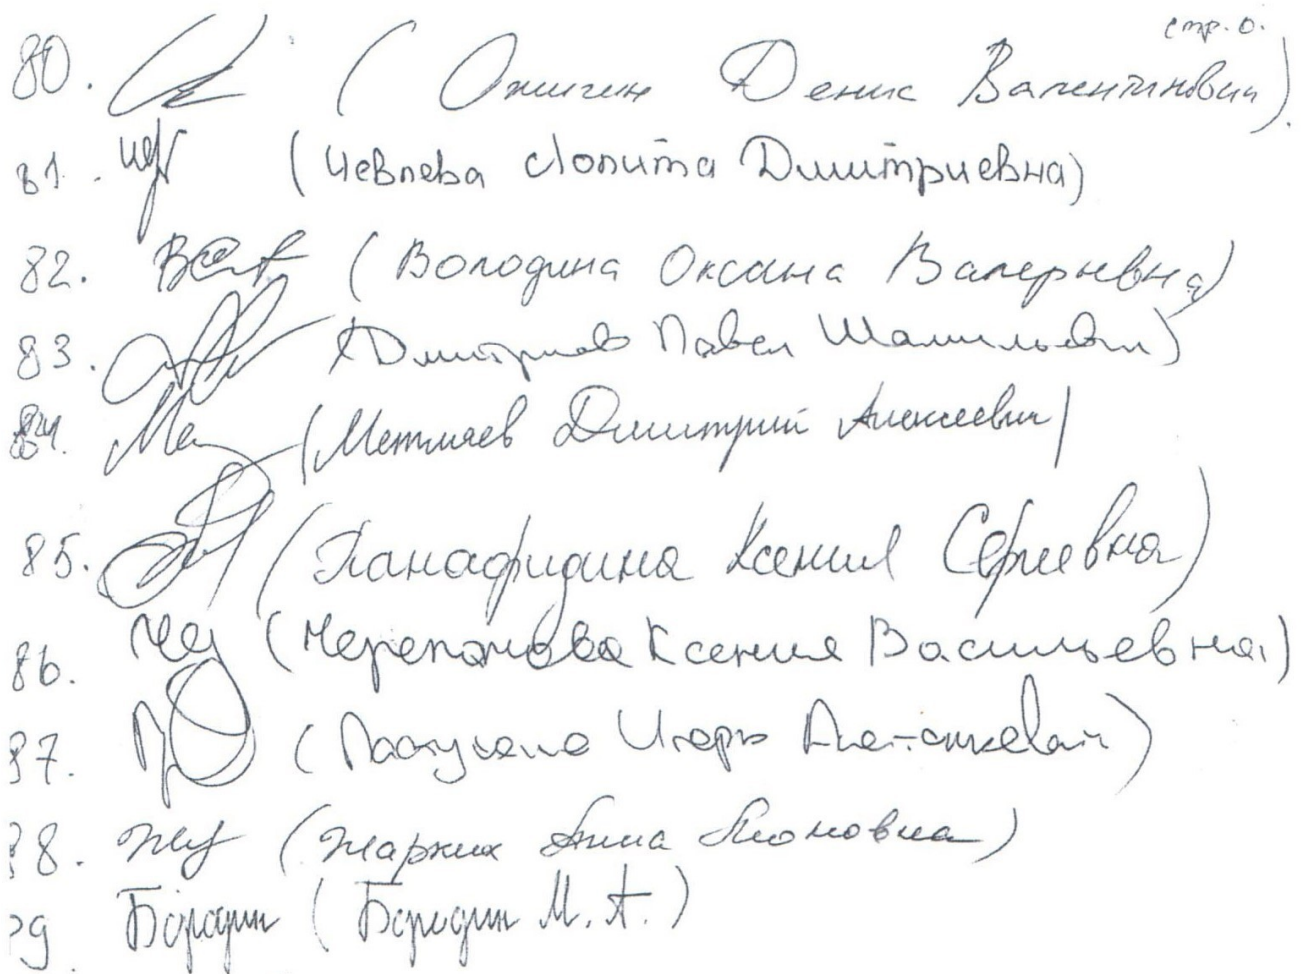 стр. 0.
80. (Ожигин Денис Валентинович).
81. (Чевлева Лолита Дмитриевна)
82. (Володина Оксана Валерьевна)
83. (Дмитриев Павел Шамильевич)
84. Ме (Метляев Дмитрий Алексеевич)
85. (Канафидина Ксения Сергеевна)
86. Чер (Черепанова Ксения Васильевна)
87. ( Игорь
88. Жар (Жарких Анна Леоновна)
89. Бородин (Бородин М. А.)